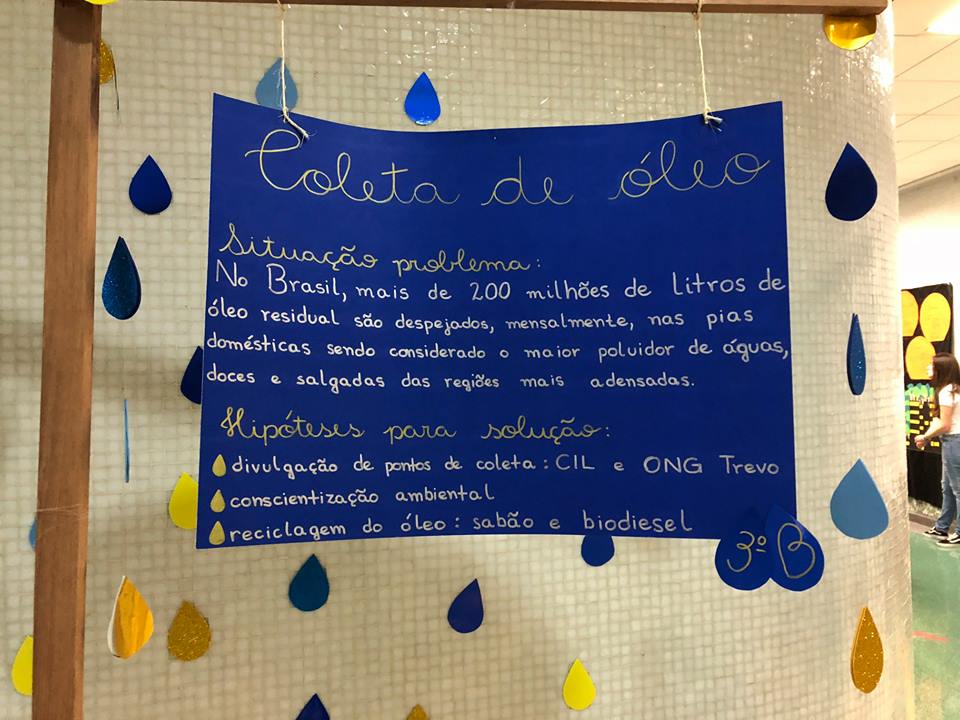 Coleta de óleo
Situação problema:
No Brasil, mais de 200 milhões de litros de
óleo residual são despejados, mensalmente, nas pias
domésticas sendo considerado o maior poluidor de águas,
doces e salgadas das regiões mais adensadas.
Hipóteses para solução:
divulgação de pontos de coleta: CIL e ONG Trevo
conscientização ambiental
reciclagem do óleo: sabão e biodiesel
3º B